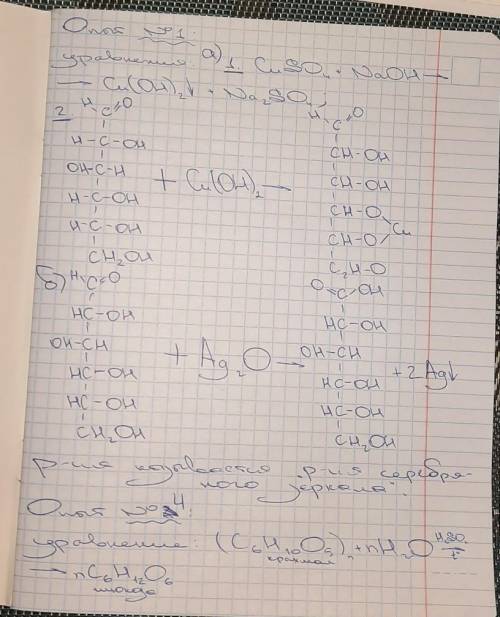 Опыт №1:
уравнения: а) 1. CuSO₄ + NaOH →
→ Cu(OH)₂↓ + Na₂SO₄;
2
H C O
H-C-OH
OH-C-H
H-C-OH
H-C-OH
CH₂OH
+ Cu(OH)₂ —
H C O
CH-OH
CH-OH
CH-O
CH-O
Cu
C₂H-O
б) H C O
HC-OH
OH-CH
HC-OH
HC-OH
CH₂OH
+ Ag₂O →
O C OH
HC-OH
OH-CH
HC-OH
HC-OH
CH₂OH
+ 2Ag↓
р-ия называется "р-ия серебря-
ного зеркала".
Опыт №4:
уравнение: (C₆H₁₀O₅)n + nH₂O H₂SO₄ t
крахмал
→ nC₆H₁₂O₆